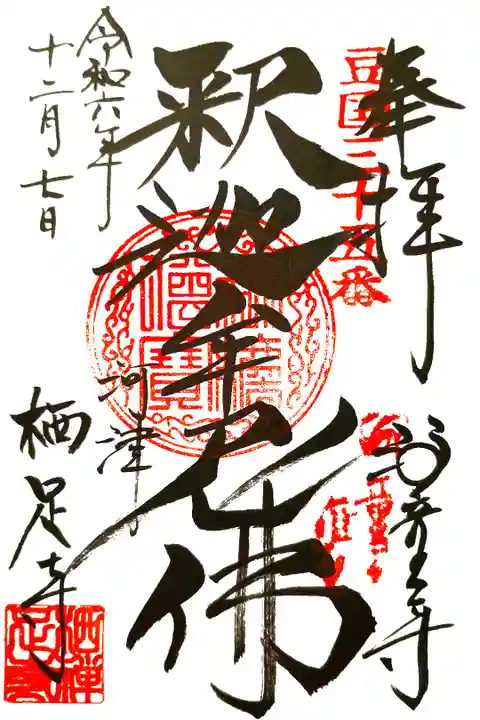 奉拝
豆国三十五番
釈迦牟尼佛
河津
栖足寺
令和六年
十二月七日